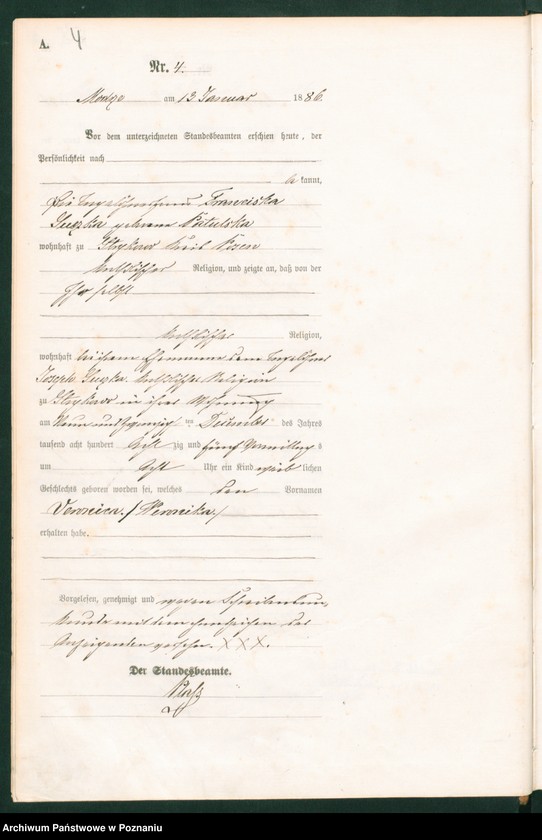 A. 4
Nr. 4.
am 13 Januar 1886.
Vor dem unterzeichneten Standesbeamten erschien heute, der
Persönlichkeit nach
be kannt,
die Franciska
geborene
wohnhaft zu Strykowo Kreis Posen
katholischer Religion, und zeigte an, daß von der
selbst
katholischer Religion,
wohnhaft bei ihrem Ehemanne dem
Joseph katholischer Religion
zu Strykowo in ihrer Wohnung
am neun und zwanzigsten Dezember des Jahres
tausend acht hundert acht zig und fünf Vormittags
um acht Uhr ein Kind weib lichen
Geschlechts geboren worden sei, welches den Vornamen
Veronica /Weronika/
erhalten habe.
Vorgelesen, genehmigt und wegen
mit dem Handzeichen des
Anzeigenden versehen. XXX.
Der Standesbeamte.
Archiwum Państwowe w Poznaniu